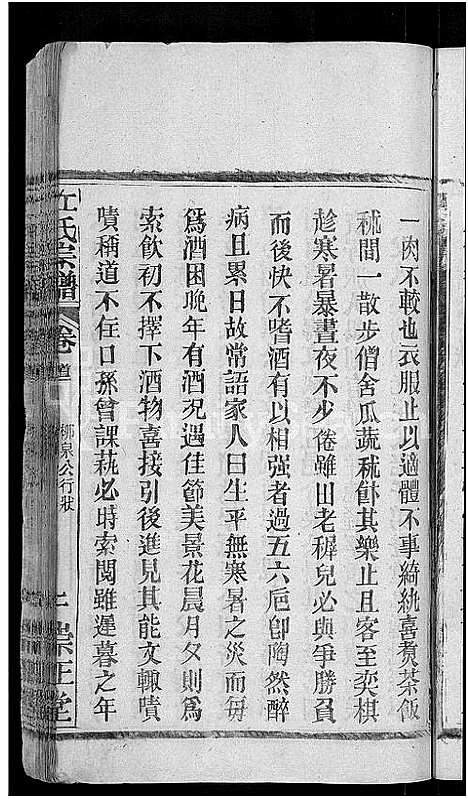 一肉不較也衣服止以適體不事綺紈喜煮茶飯
秫間一散步僧舍瓜蔬秫餅其樂止且客至奕棋
趁寒暑暴晝夜不少倦雖田老穉兒必與爭勝負
而後快不嗜酒有以相强者過五六巵卽陶然醉
病且累日故常語家人曰生平無寒暑之災而每
爲酒困晚年有酒況遇佳節美景花晨月夕則爲
索飲初不擇下酒物喜接引後進見其能文輙嘖
嘖稱道不住口孫曾課蓺必時索閱雖遲暮之年
丘氏宗譜 卷首 柳泉公行狀 崇正堂